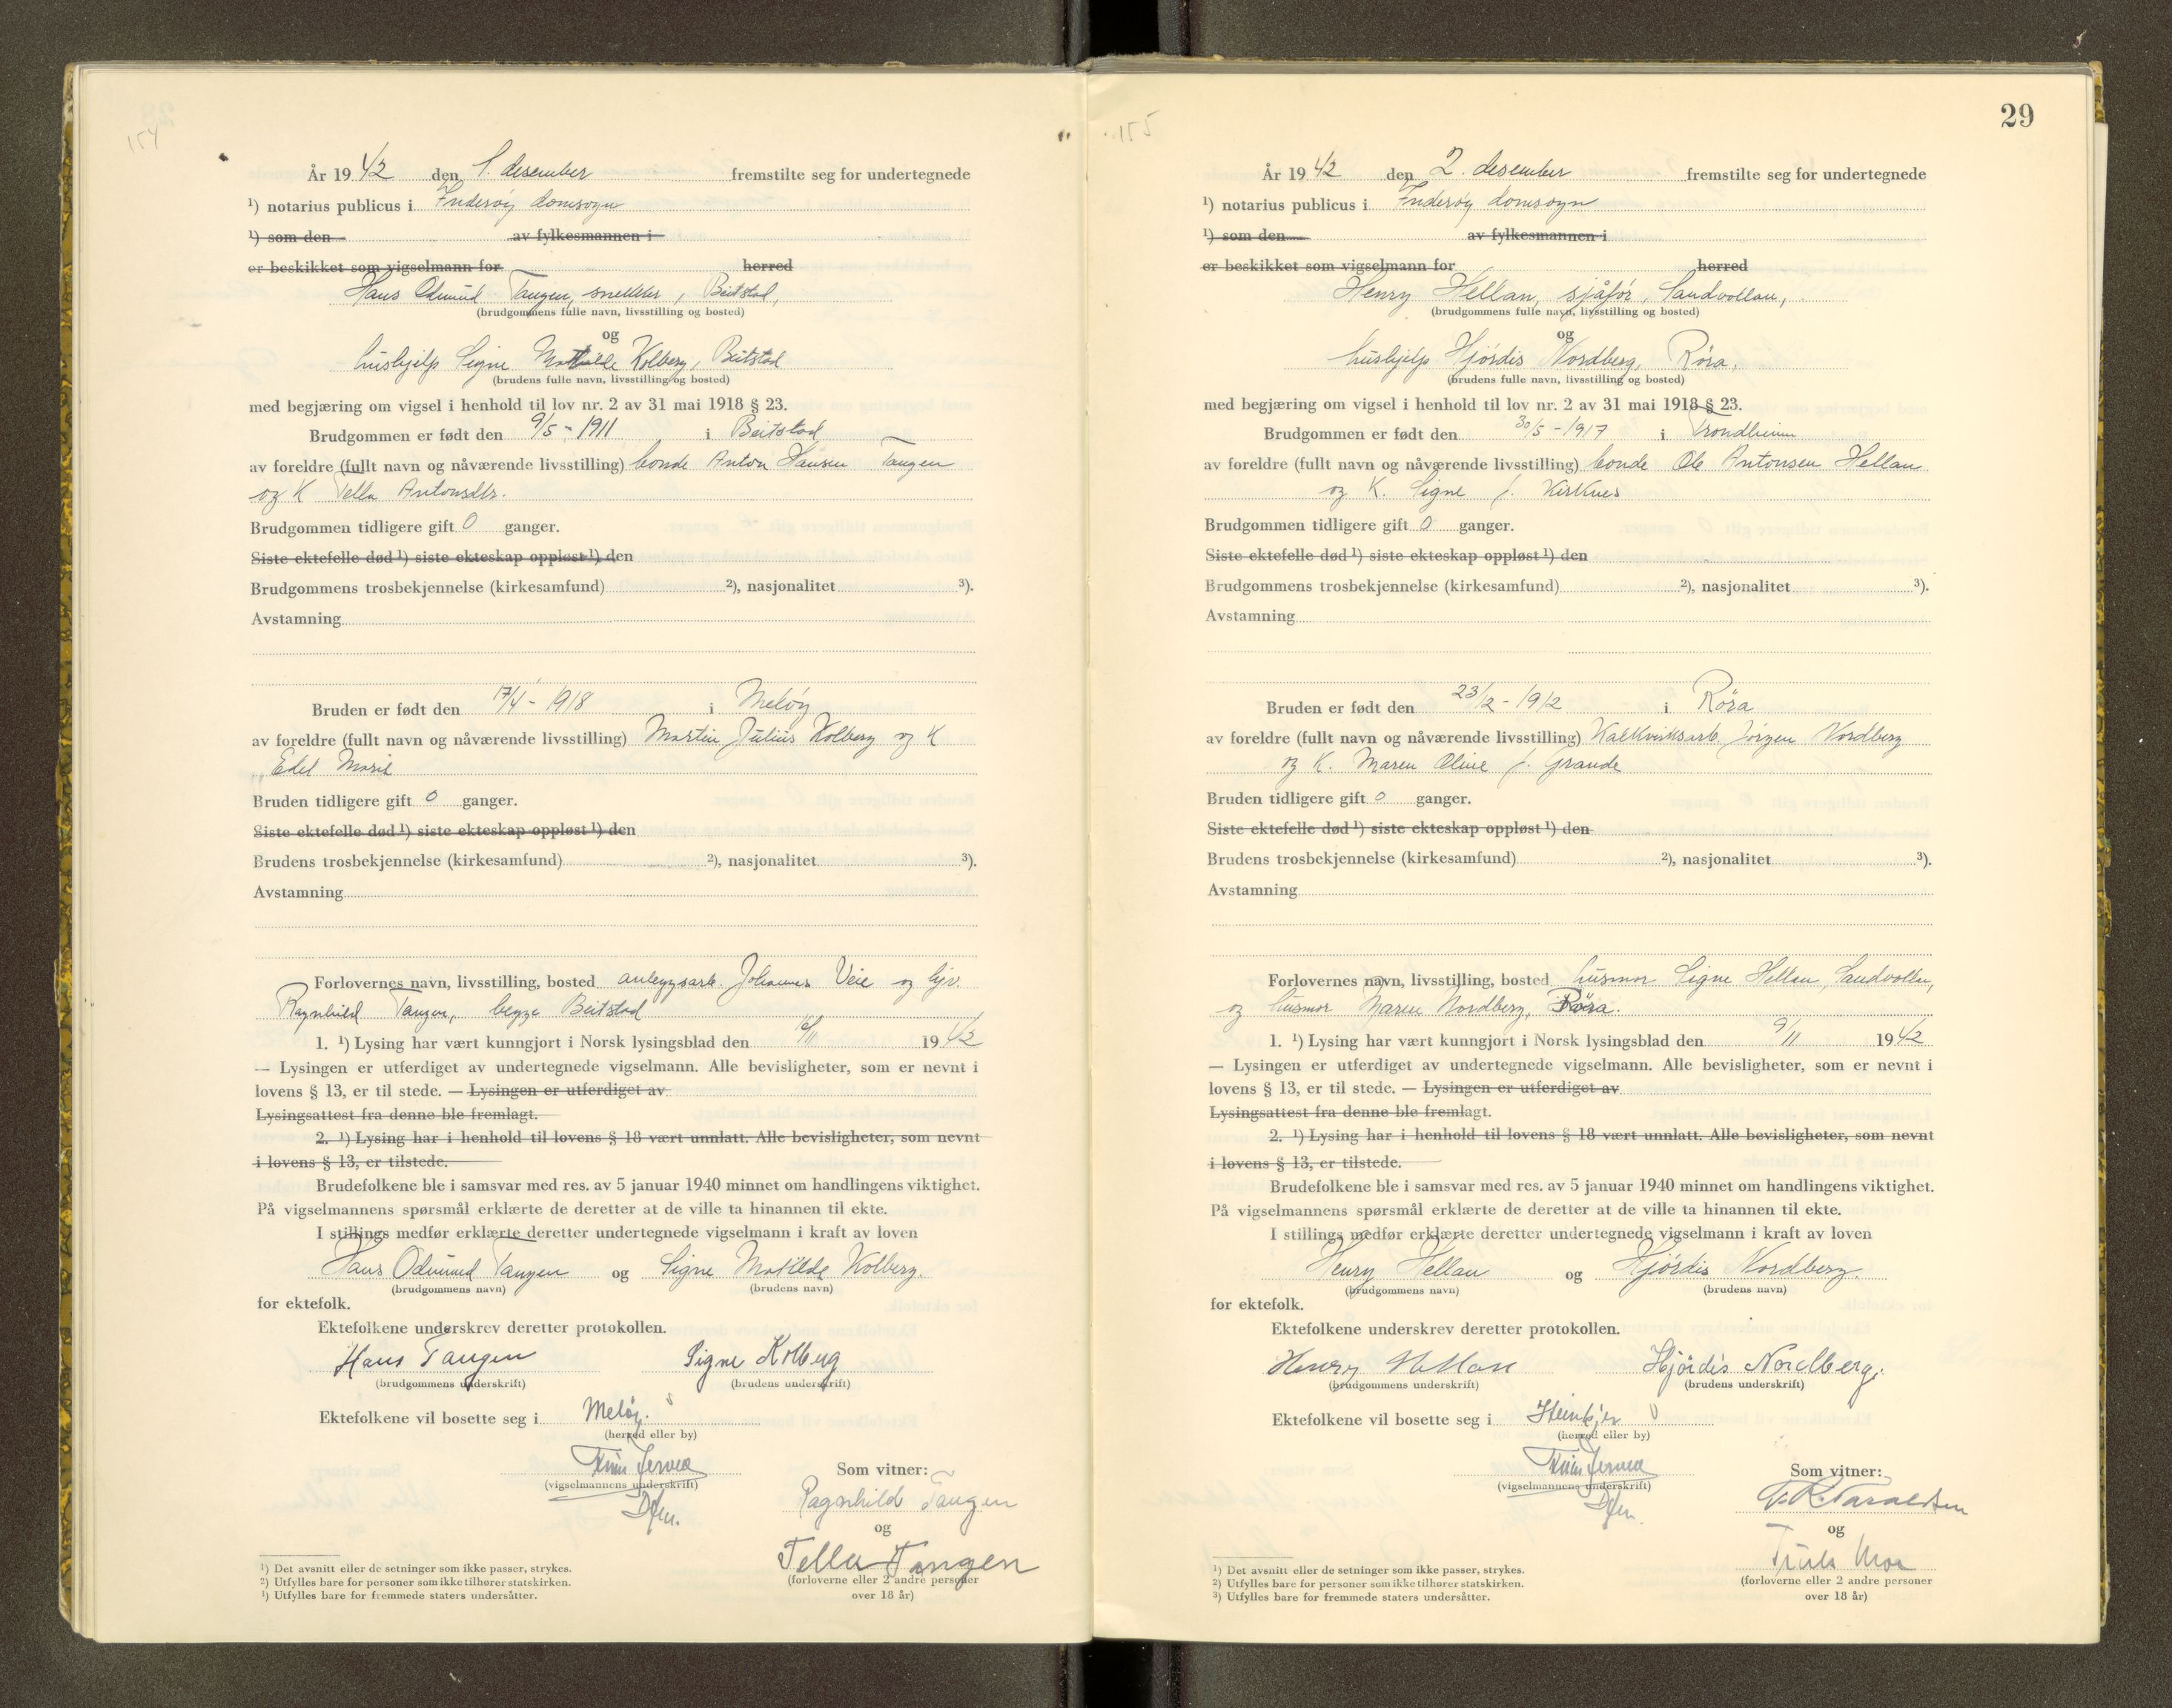 154
År 1942 den 1. desember fremstilte seg for undertegnede
¹) notarius publicus i Inderøy domsogn
¹) som den av fylkesmannen i
er beskikket som vigselmann for herred
Hans Odmund Tangen, snekker, Beitstad,
(brudgommens fulle navn, livsstilling og bosted)
og
hushjelp Signe Kolberg, Beitstad
(brudens fulle navn, livsstilling og bosted)
med begjæring om vigsel i henhold til lov nr. 2 av 31 mai 1918 § 23.
Brudgommen er født den 9/5 - 1911 i Beitstad
av foreldre (fullt navn og nåværende livsstilling) bonde Anton Hansen Tangen
og K Tella Antonsdtr.
Brudgommen tidligere gift 0 ganger.
Siste ektefelle død ¹) siste ekteskap oppløst ¹) den
Brudgommens trosbekjennelse (kirkesamfund) ²), nasjonalitet ³).
Avstamning
Bruden er født den 17/4 - 1918 i Meløy
av foreldre (fullt navn og nåværende livsstilling) Martin Julius Kolberg og K
Edel
Bruden tidligere gift 0 ganger.
Siste ektefelle død ¹) siste ekteskap oppløst ¹) den
Brudens trosbekjennelse (kirkesamfund) ²), nasjonalitet ³).
Avstamning
Forlovernes navn, livsstilling, bosted anleggsarb. Johannes Veie og hjv.
Ragnhild Tangen, begge Beitstad
1. ¹) Lysing har vært kunngjort i Norsk lysingsblad den 1942
— Lysingen er utferdiget av undertegnede vigselmann. Alle bevisligheter, som er nevnt i
lovens § 13, er til stede. — Lysingen er utferdiget av
Lysingsattest fra denne ble fremlagt.
2. ¹) Lysing har i henhold til lovens § 18 vært unnlatt. Alle bevisligheter, som nevnt
i lovens § 13, er tilstede.
Brudefolkene ble i samsvar med res. av 5 januar 1940 minnet om handlingens viktighet.
På vigselmannens spørsmål erklærte de deretter at de ville ta hinannen til ekte.
I stillings medfør erklærte deretter undertegnede vigselmann i kraft av loven
Hans Odmund Tangen og Signe Matilde Kolberg.
(brudgommens navn) (brudens navn)
for ektefolk.
Ektefolkene underskrev deretter protokollen.
Hans Tangen Signe Kolberg
(brudgommens underskrift) (brudens underskrift)
Ektefolkene vil bosette seg i Meløy.
(herred eller by)
Som vitner:
(vigselmannens underskrift)
Dfm.
Ragnhild Tangen
og
Tella Tangen
(forloverne eller 2 andre personer
over 18 år)
¹) Det avsnitt eller de setninger som ikke passer, strykes.
²) Utfylles bare for personer som ikke tilhører statskirken.
³) Utfylles bare for fremmede staters undersåtter.
29
155
År 1942 den 2. desember fremstilte seg for undertegnede
¹) notarius publicus i Inderøy domsogn
¹) som den av fylkesmannen i
er beskikket som vigselmann for herred
Henry Hellan, sjåfør, Sandvollan,
(brudgommens fulle navn, livsstilling og bosted)
og
hushjelp Hjørdis Nordberg, Røra,
(brudens fulle navn, livsstilling og bosted)
med begjæring om vigsel i henhold til lov nr. 2 av 31 mai 1918 § 23.
Brudgommen er født den 30/5 - 1917 i Trondheim
av foreldre (fullt navn og nåværende livsstilling) bonde Ole Antonsen Hellan
og K. Signe f. Kirknes
Brudgommen tidligere gift 0 ganger.
Siste ektefelle død ¹) siste ekteskap oppløst ¹) den
Brudgommens trosbekjennelse (kirkesamfund) ²), nasjonalitet ³).
Avstamning
Bruden er født den 23/12 - 1912 i Røra
av foreldre (fullt navn og nåværende livsstilling) Kalkverksarb. Jørgen Nordberg
og K. Maren Oline f. Grande
Bruden tidligere gift 0 ganger.
Siste ektefelle død ¹) siste ekteskap oppløst ¹) den
Brudens trosbekjennelse (kirkesamfund) ²), nasjonalitet ³).
Avstamning
Forlovernes navn, livsstilling, bosted husmor Signe Hellan, Sandvollan,
og husmor Maren Nordberg, Røra.
1. ¹) Lysing har vært kunngjort i Norsk lysingsblad den 9/11 1942
— Lysingen er utferdiget av undertegnede vigselmann. Alle bevisligheter, som er nevnt i
lovens § 13, er til stede. — Lysingen er utferdiget av
Lysingsattest fra denne ble fremlagt.
2. ¹) Lysing har i henhold til lovens § 18 vært unnlatt. Alle bevisligheter, som nevnt
i lovens § 13, er tilstede.
Brudefolkene ble i samsvar med res. av 5 januar 1940 minnet om handlingens viktighet.
På vigselmannens spørsmål erklærte de deretter at de ville ta hinannen til ekte.
I stillings medfør erklærte deretter undertegnede vigselmann i kraft av loven
Henry Hellan og Hjørdis Nordberg.
(brudgommens navn) (brudens navn)
for ektefolk.
Ektefolkene underskrev deretter protokollen.
Henry Hellan Hjørdis Nordberg.
(brudgommens underskrift) (brudens underskrift)
Ektefolkene vil bosette seg i Steinkjer
(herred eller by)
Som vitner:
(vigselmannens underskrift)
Dfm.
og
Moe
(forloverne eller 2 andre personer
over 18 år)
¹) Det avsnitt eller de setninger som ikke passer, strykes.
²) Utfylles bare for personer som ikke tilhører statskirken.
³) Utfylles bare for fremmede staters undersåtter.